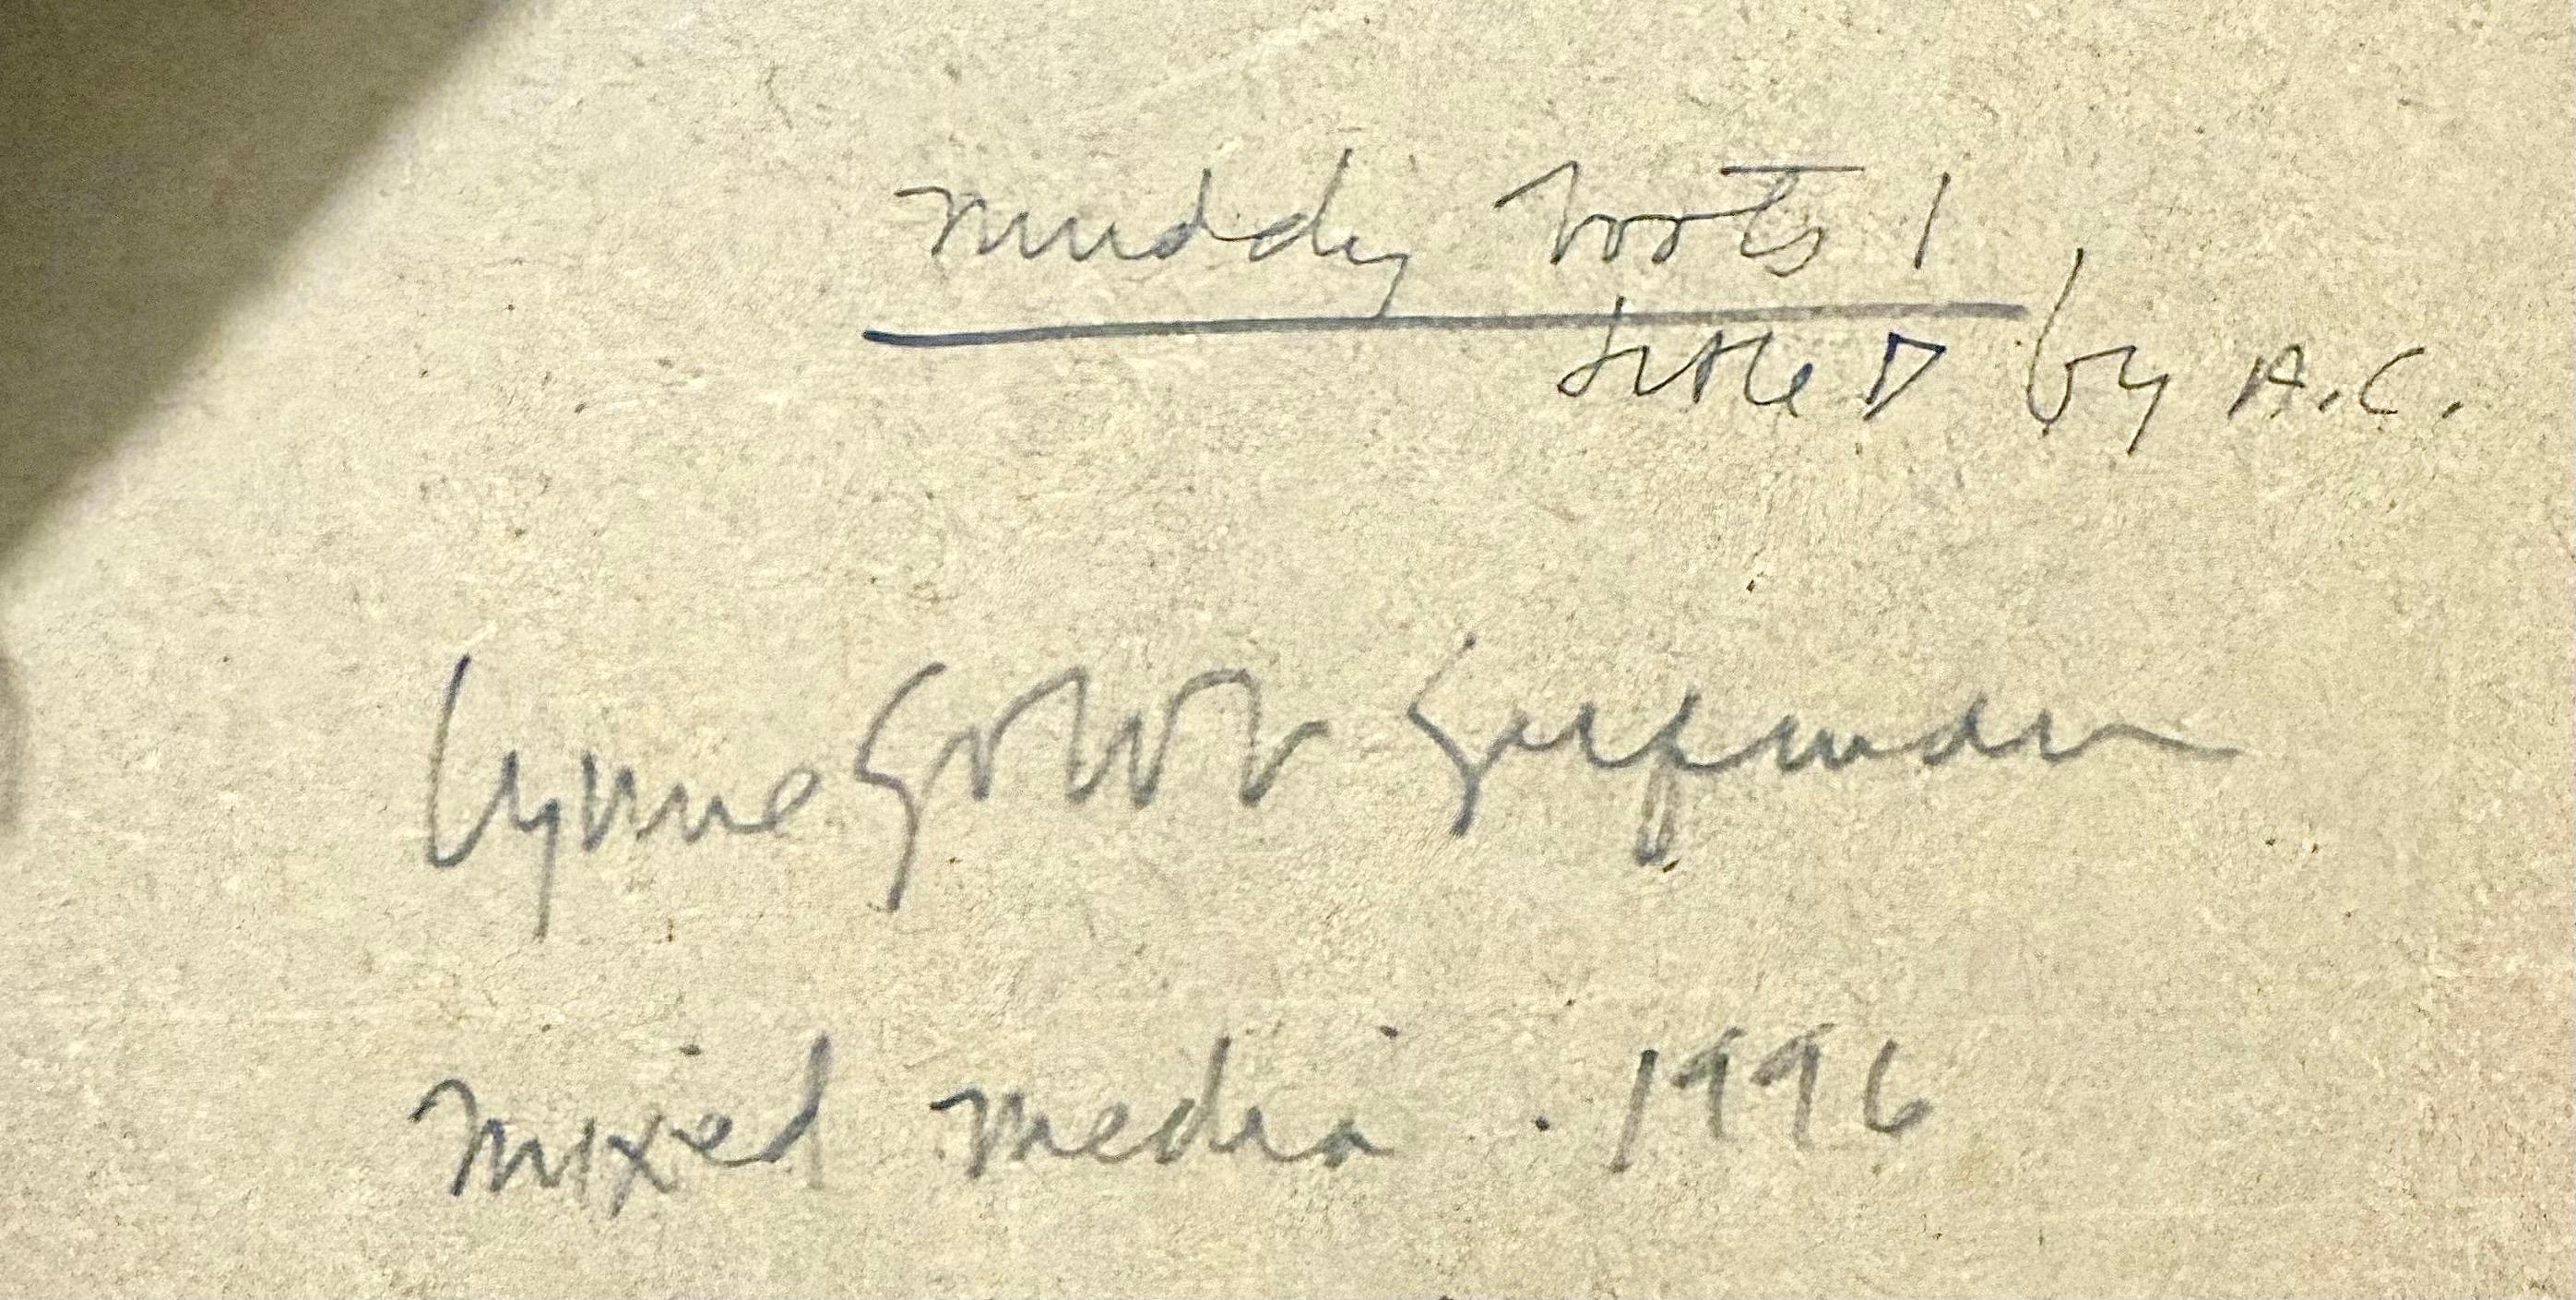 muddy roots 1
titleD by A.C.
Lynne Golob Gelfman
mixed media . 1996